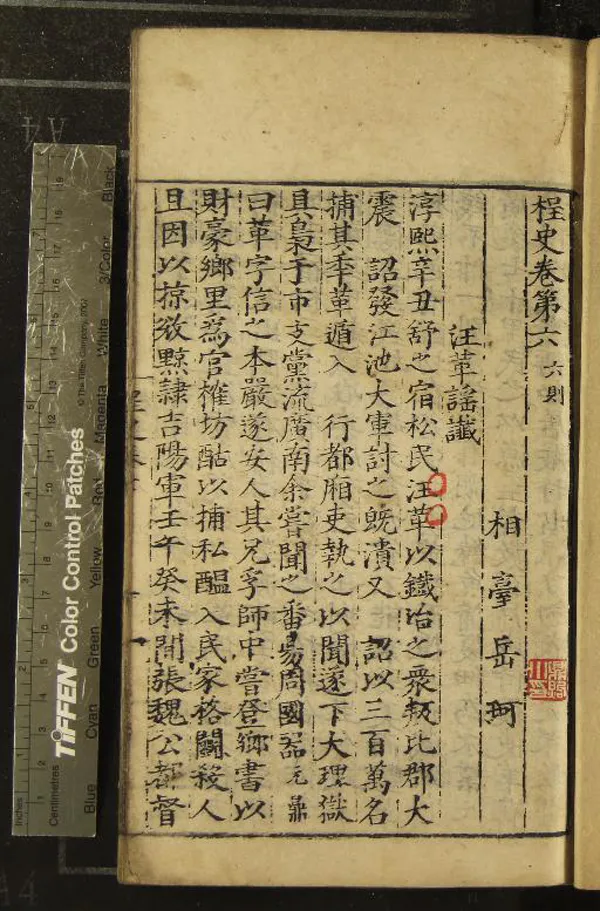 桯史卷第六 六則
相臺岳珂
汪革謠讖
淳熙辛丑舒之宿松民汪革以鐵冶之衆叛比郡大
震 詔發江池大軍討之旣潰又 詔以三百萬名
捕其秊革遁入 行都廂吏執之以聞遂下大理獄
具梟于市支黨流廣南余嘗聞之番昜周國器元鼎
曰革字信之本嚴遂安人其兄孚師中嘗登鄉書以
財豪鄉里爲官榷坊酤以捕私醞入民家格鬭殺人
且因以掠敓黥隷吉陽軍壬午癸未間張魏公都督
TIFFEN Color Control Patches
© The Tiffen Company, 2007
Inches
Centimetres
Blue Cyan Green Yellow Red Magenta White 3/Color Black
A4
A4